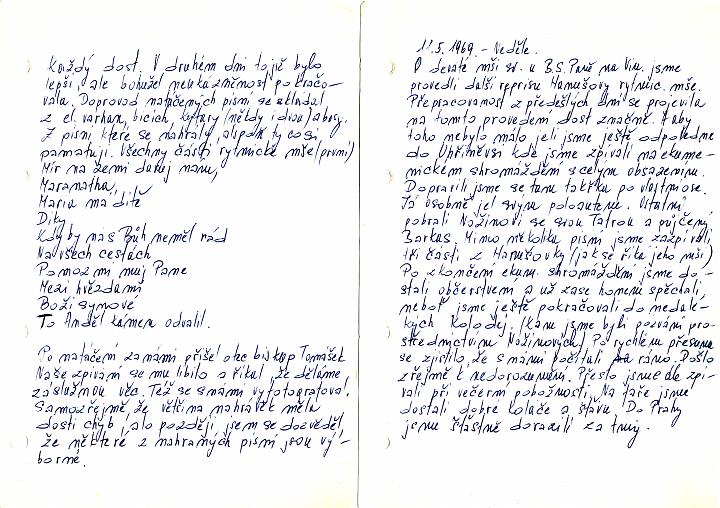 každý dost. V druhém dni to již bylo
lepší, ale bohužel neukázněnost pokračo-
vala. Doprovod natáčených písní se skládal
z el. varhan, bicích, kytary (někdy i dvou) a basy.
Z písní, které se nahrály, alespoň ty co si
pamatuji. Všechny části rytmické mše (první)
Mír na zemi daruj nám,
Maranatha,
Maria má dítě
Díky
Kdyby nás Bůh neměl rád
Na všech cestách
Pomoz mi můj Pane
Mezi hvězdami
Boží synové
To Anděl kámen odvalil.
Po natáčení za námi přišel otec biskup Tomášek
Naše zpívání se mu líbilo a říkal, že děláme
záslužnou věc. Též se s námi vyfotografoval.
Samozřejmě, že většina nahrávek měla
dosti chyb, ale později jsem se dozvěděl,
že některé z nahraných písní jsou vý-
borné.
11.5.1969. - Neděle.
O deváté mši sv. u B.S. Páně na Vin. jsme
provedli další reprisu Hanušovy rytmic. mše.
Přepracovanost z předešlých dní se projevila
na tomto provedení dost značně. A aby
toho nebylo málo jeli jsme ještě odpoledne
do Uhříněvsi kde jsme zpívali na ekume-
nickém shromáždění s celým obsazením.
Dopravili jsme se tam taktéž po vlastní ose.
Já osobně jel svým poloautem. Ostatní
pobrali Nožinovi se svou Tatrou a půjčený
Barkas. Mimo několika písní jsme zazpívali
tři části z Hanušovky (jak se říká jeho mši)
Po skončení ekum. shromáždění jsme do-
stali občerstvení a už zase honem spěchali,
neboť jsme ještě pokračovali do nedale-
kých Koloděj. (Kam jsme byli pozváni pro-
střednictvím Nožinových) Po rychlém přesunu
se zjistilo, že s námi počítali ráno. Došlo
zřejmě k nedorozumění. Přesto jsme zpí-
vali při večerní pobožnosti. Na faře jsme
dostali dobré koláče a šťávu. Do Prahy
jsme šťastně dorazili za tmy.